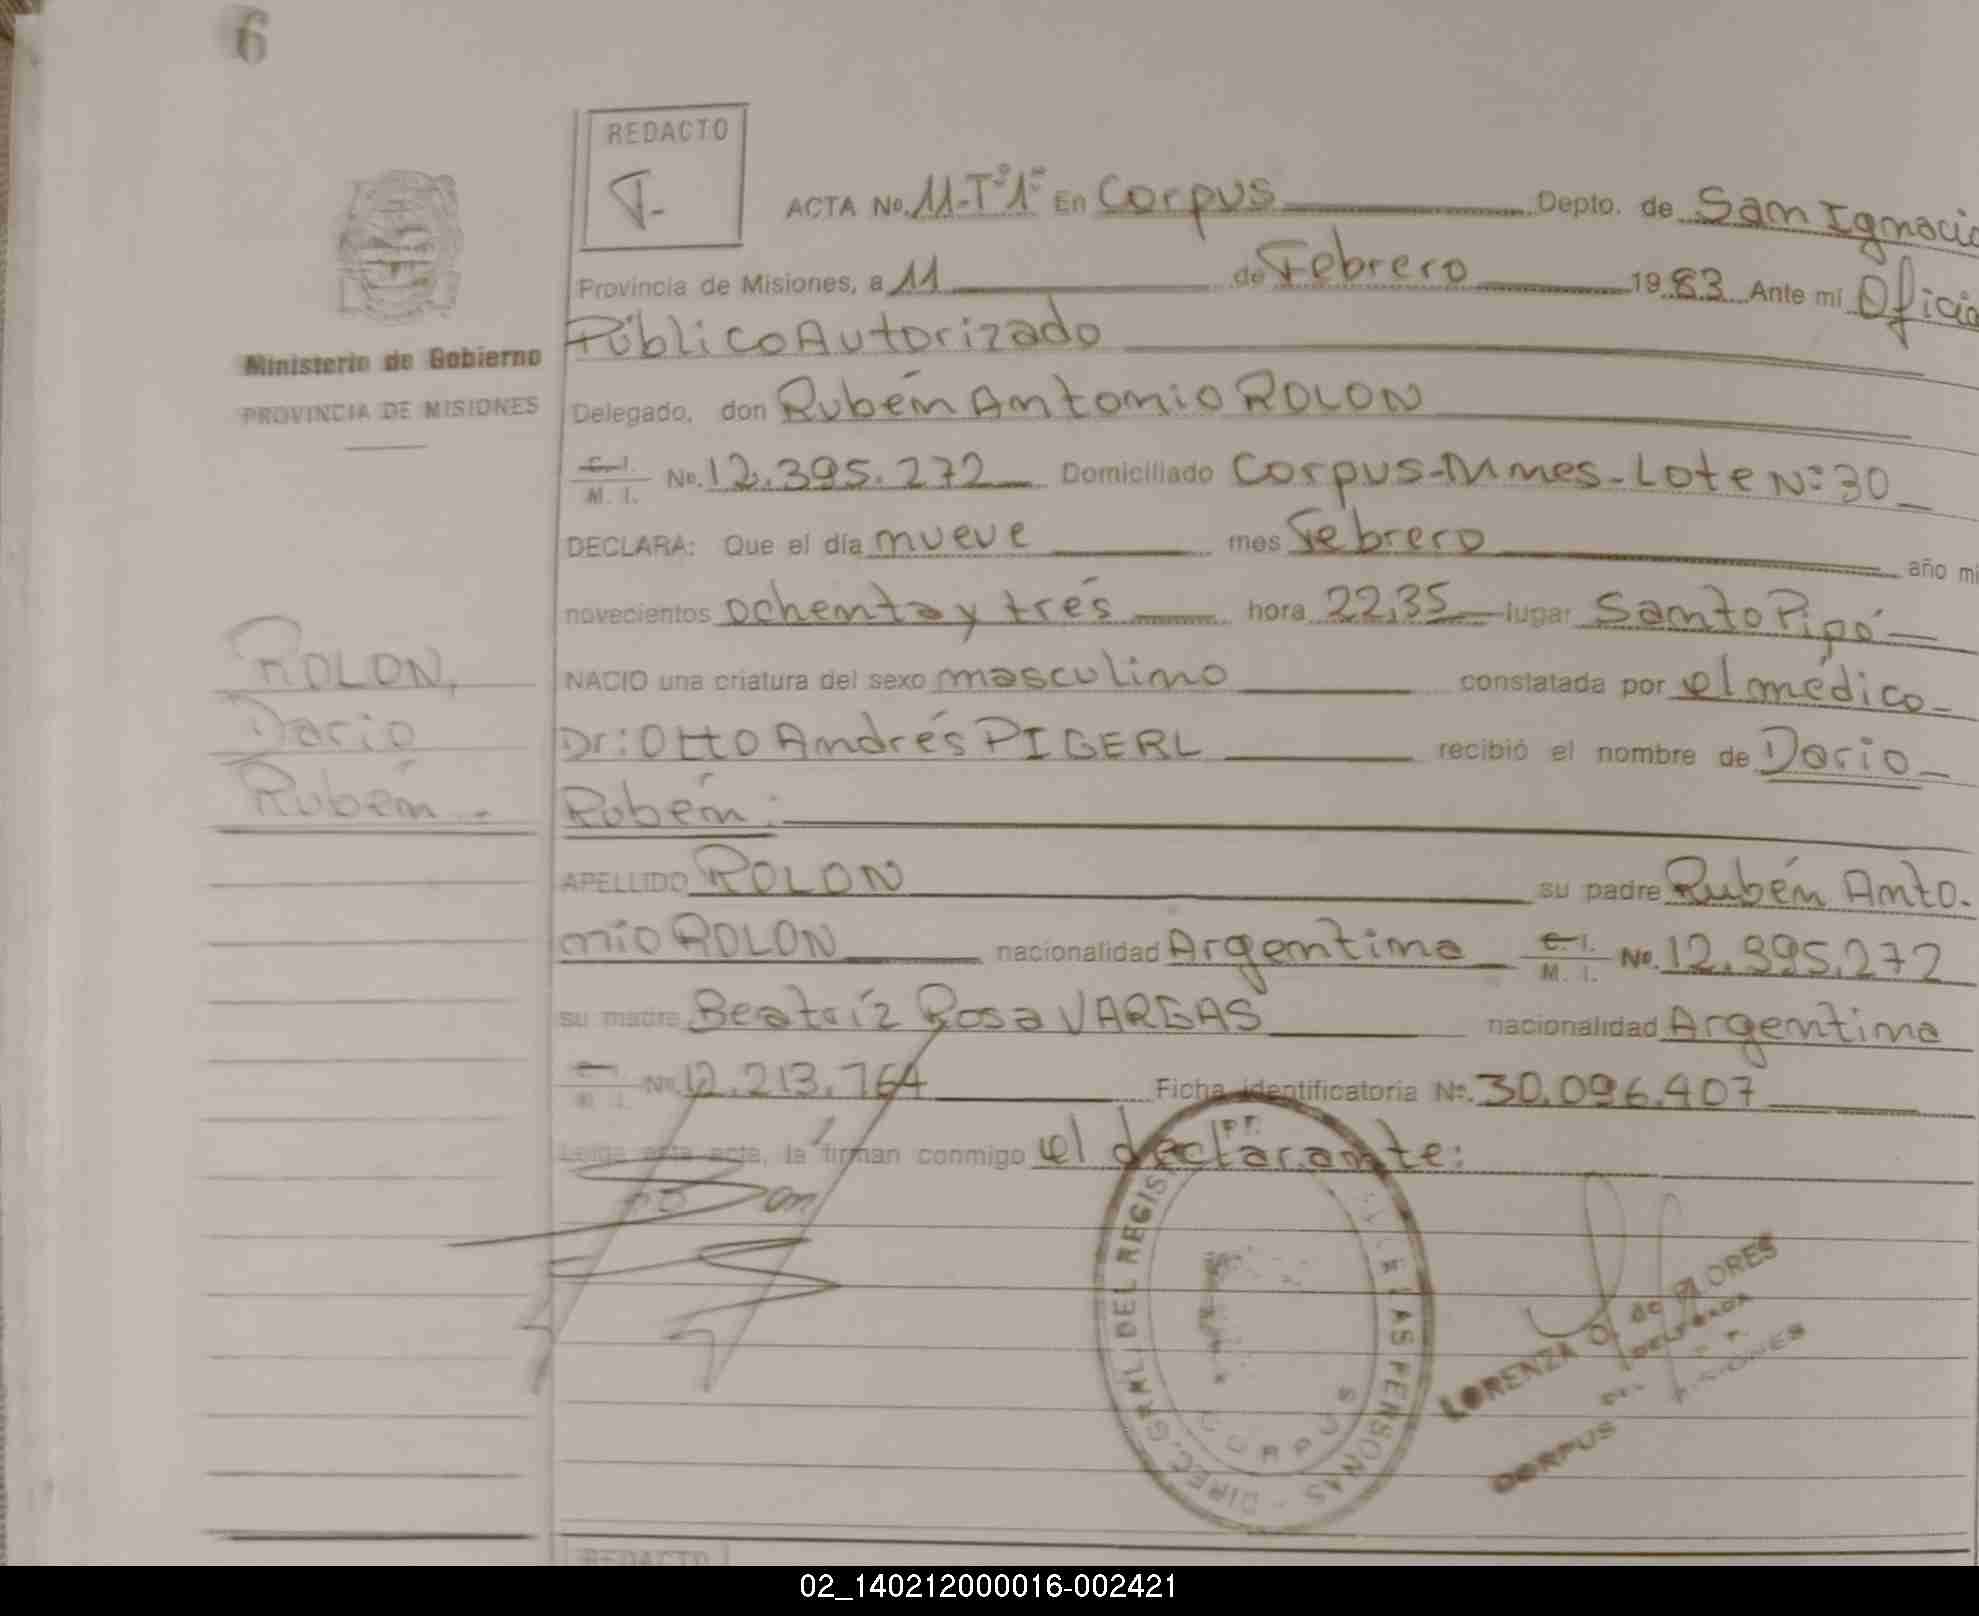 6
REDACTO
F.-
ACTA No. 11-Tº1º En Corpus Depto. de San Ignacio
Provincia de Misiones, a 11 de Febrero 1983 Ante mi Oficia
Público Autorizado
Ministerio de Gobierno
PROVINCIA DE MISIONES
Delegado, don Rubén Antonio ROLON
C. I. M. I. No. 12.395.272 Domiciliado Corpus-Mnes-Lote Nº30
DECLARA: Que el día nueve mes Febrero año mi
novecientos ochenta y trés hora 22,35 lugar Santo Pipó
NACIO una criatura del sexo masculino constatada por el médico
Dr: Otto Andrés PIGERL recibió el nombre de Dario
Rubén:
ROLON,
Dario
Rubén.-
APELLIDO ROLON su padre Rubén Anto-
nio ROLON nacionalidad Argentina C. I. M. I. No. 12.395.272
su madre Beatríz Rosa VARGAS nacionalidad Argentina
M. I. No. 12.213.764 Ficha identificatoria Nº. 30.096.407
Leída esta acta, la firman conmigo el declarante:
DIREC. GRAL. DEL REGIS PERSONAS
CORPUS
LORENZA O. de FLORES
DELEGADA
CORPUS MISIONES
REDACTO
02_140212000016-002421